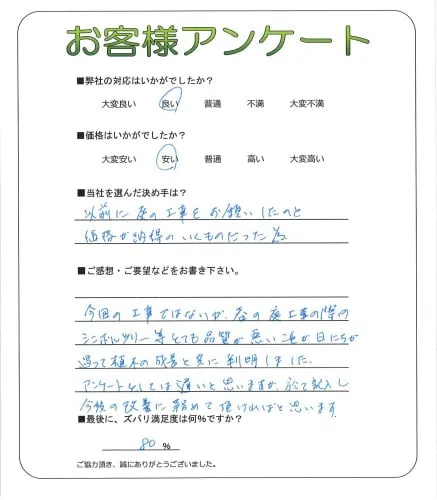 お客様アンケート
■弊社の対応はいかがでしたか？
大変良い 良い 普通 不満 大変不満
■価格はいかがでしたか？
大変安い 安い 普通 高い 大変高い
■当社を選んだ決め手は？
以前に庭の工事をお願いしたのと
価格が納得のいくものだった為
■ご感想・ご要望などをお書き下さい。
今回の工事ではないが、春の庭工事の際の
シンボルツリー等とても品質が悪い事が日にちが
過って植木の成長と共に判明しました。
アンケートとしては遅いと思いますが、記入し
今後の改善に努めて頂ければと思います。
■最後に、ズバリ満足度は何％ですか？
80 %
ご協力頂き、誠にありがとうございました。